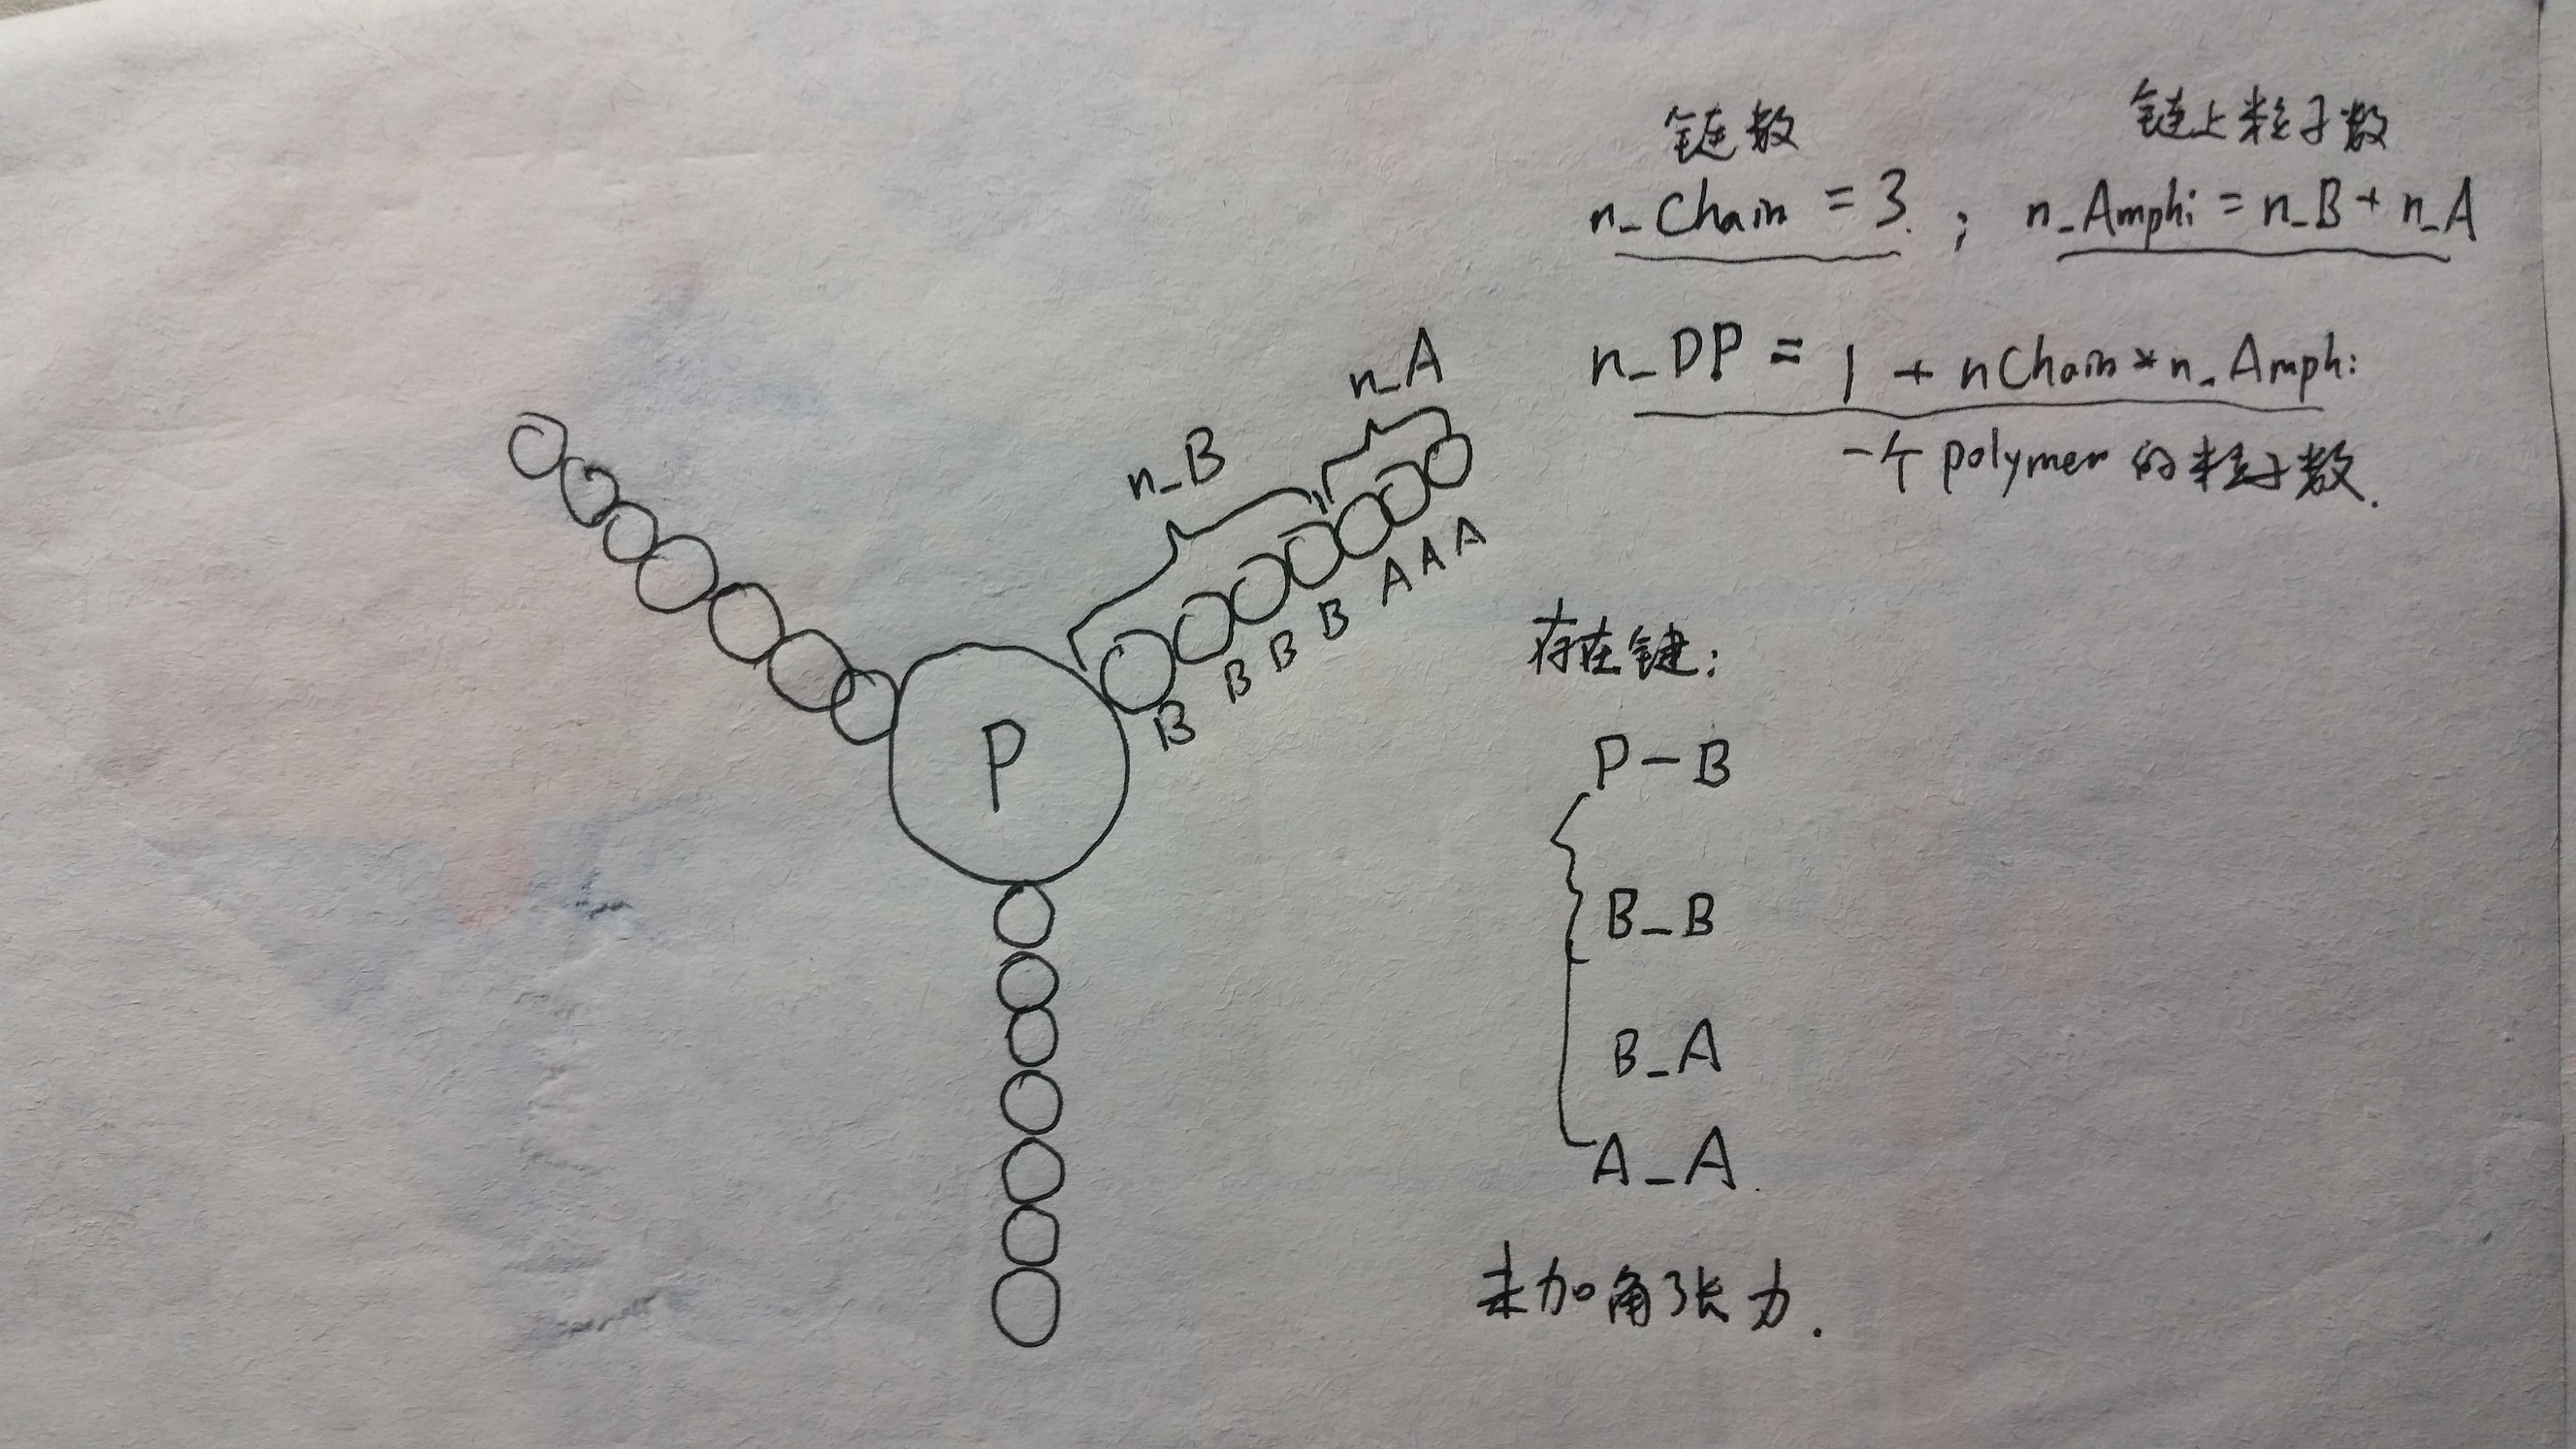 链数
链上粒子数
n_Chain = 3. ; n_Amphi = n_B + n_A
n_DP = 1 + nChain * n_Amphi
一个 polymer 的粒子数.
n_A
n_B
B B B B A A A
P
存在键:
P-B
B_B
B_A
A_A.
未加角张力.